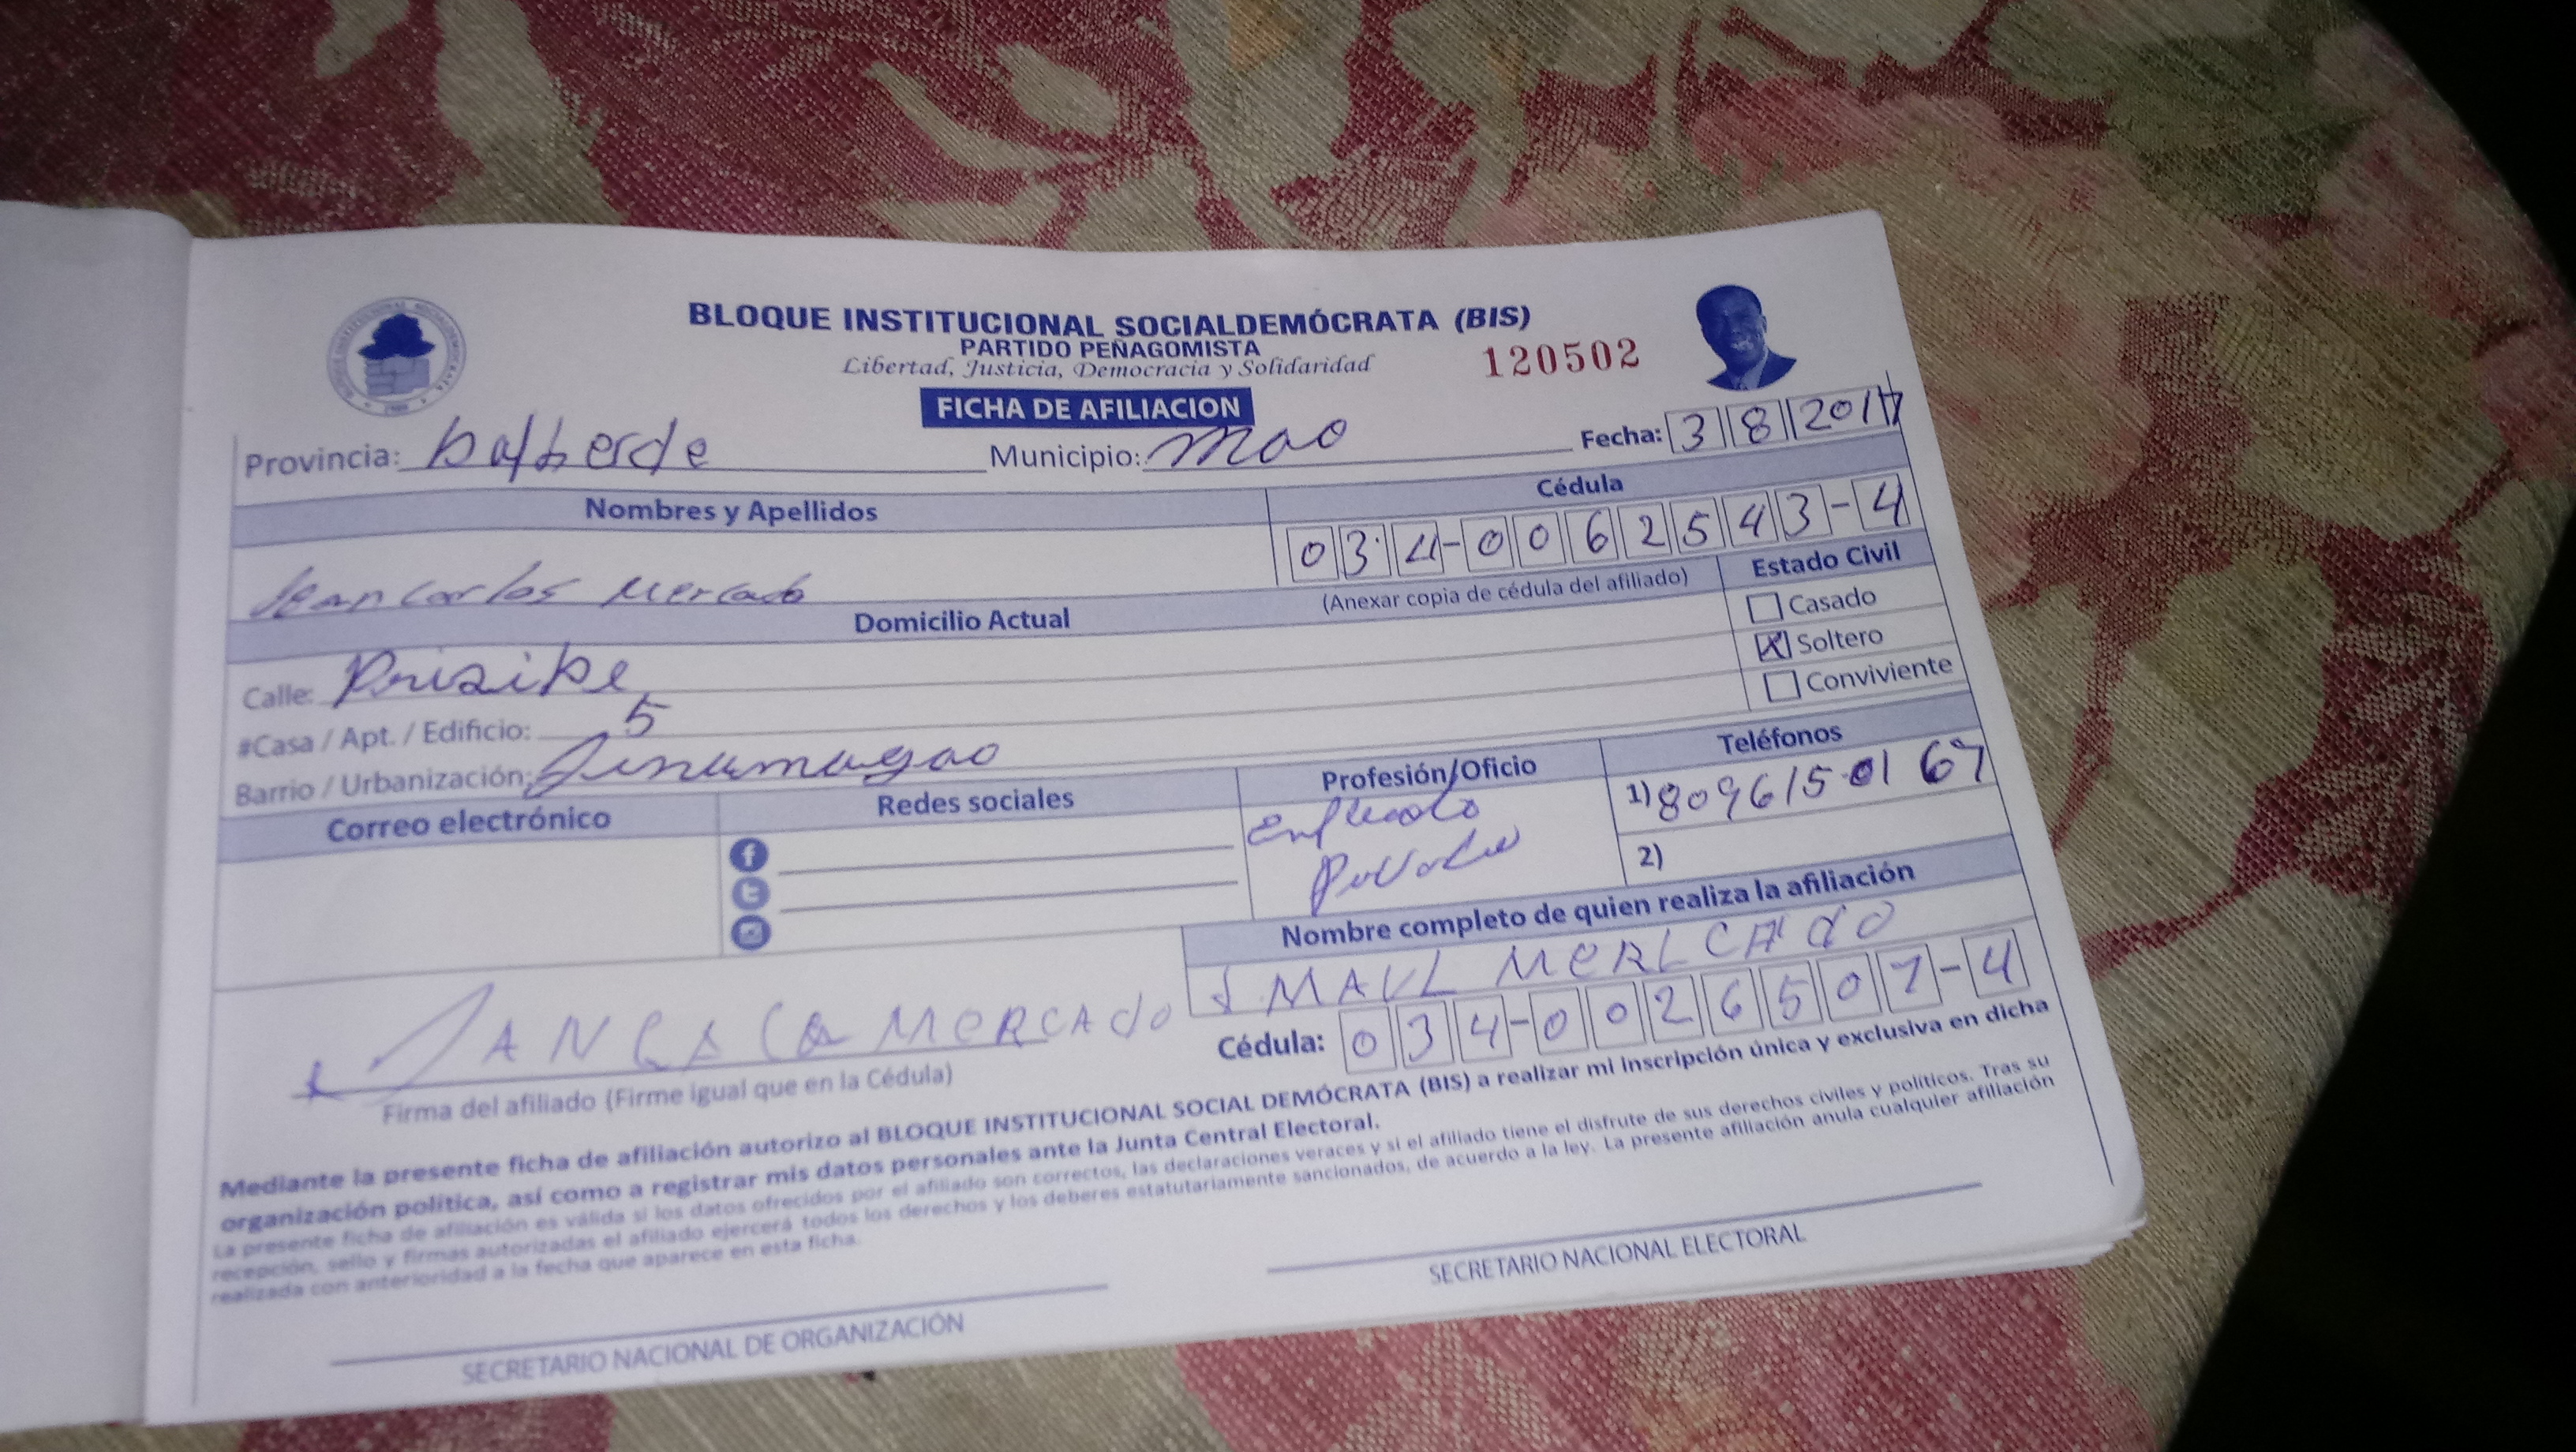 BLOQUE INSTITUCIONAL SOCIALDEMÓCRATA (BIS)
PARTIDO PEÑAGOMISTA
Libertad, Justicia, Democracia y Solidaridad
120502
FICHA DE AFILIACION
Provincia: balberde Municipio: mao Fecha: 3 8 2017
Nombres y Apellidos Cédula
Jean carlos Mercado 034-0062543-4
(Anexar copia de cédula del afiliado)
Domicilio Actual Estado Civil
Casado
X Soltero
Conviviente
Calle: Prisipe
#Casa / Apt. / Edificio: 5
Barrio / Urbanización:
Correo electrónico Redes sociales Profesión/Oficio Teléfonos
1) 8096150167
2)
Nombre completo de quien realiza la afiliación
MERCADO
Cédula: 034-0026507-4
Firma del afiliado (Firme igual que en la Cédula)
Mediante la presente ficha de afiliación autorizo al BLOQUE INSTITUCIONAL SOCIAL DEMÓCRATA (BIS) a realizar mi inscripción única y exclusiva en dicha
organización política, así como a registrar mis datos personales ante la Junta Central Electoral.
La presente ficha de afiliación es válida si los datos ofrecidos por el afiliado son correctos, las declaraciones veraces y si el afiliado tiene el disfrute de sus derechos civiles y políticos. Tras su
recepción, sello y firmas autorizadas el afiliado ejercerá todos los derechos y los deberes estatutariamente sancionados, de acuerdo a la ley. La presente afiliación anula cualquier afiliación
realizada con anterioridad a la fecha que aparece en esta ficha.
SECRETARIO NACIONAL DE ORGANIZACIÓN
SECRETARIO NACIONAL ELECTORAL